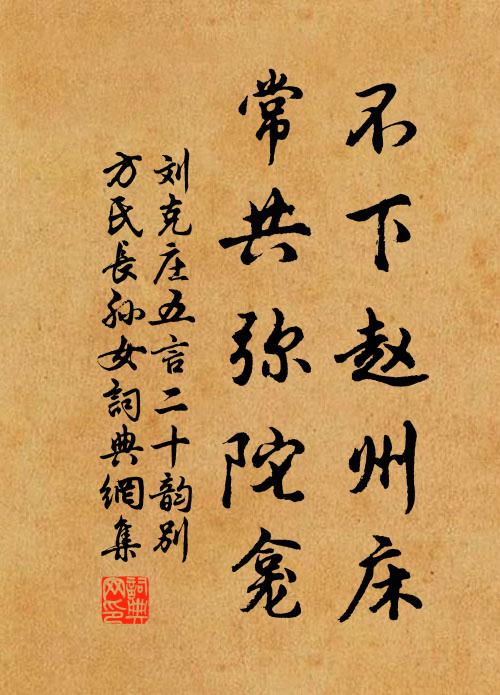 不下赵州床
常共弥陀龛
刘克庄五言二十韵别
方氏長孙女詞典網集
詞典网印